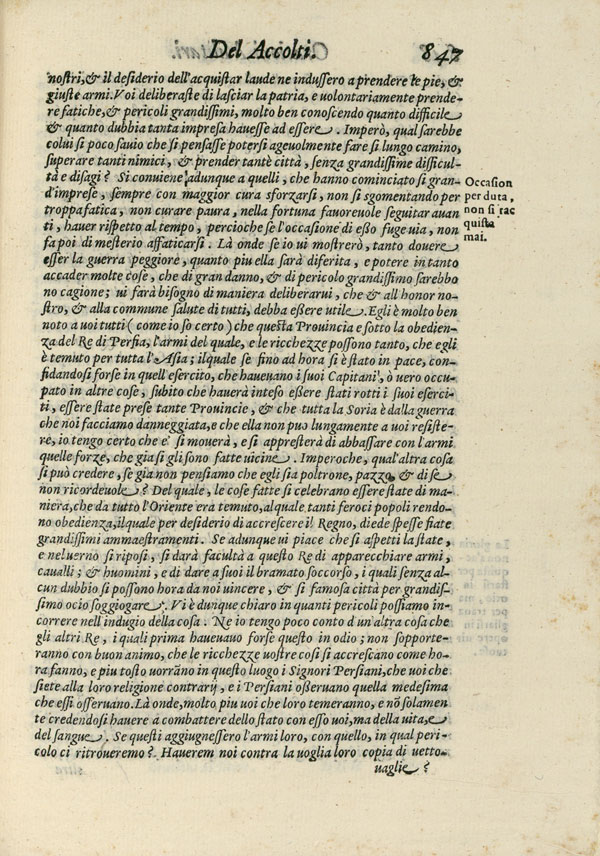 Del Accolti. 847
nostri, & il desiderio dell'acquistar laude ne indussero a prendere le pie, &
giuste armi. Voi deliberaste di lasciar la patria, e uolontariamente prende-
re fatiche, & pericoli grandissimi, molto ben conoscendo quanto difficile
& quanto dubbia tanta impresa hauesse ad essere. Imperò, qual sarebbe
colui si poco sauio che si pensasse potersi ageuolmente fare si lungo camino,
superare tanti nimici, & prender tante città, senza grandissime difficul-
tà e disagi? Si conuiene adunque a quelli, che hanno cominciato si gran-
d'imprese, sempre con maggior cura sforzarsi, non si sgomentando per
troppa fatica, non curare paura, nella fortuna fauoreuole seguitar auan
ti, hauer rispetto al tempo, percioche se l'occasione di esso fugge uia, non
fa poi di mesterio affaticarsi. Là onde se io ui mostrerò, tanto douere
esser la guerra peggiore, quanto piu ella sarà diferita, e potere in tanto
accader molte cose, che di gran danno, & di pericolo grandissimo sarebbo
no cagione; ui farà bisogno di maniera deliberarui, che & all honor no-
stro, & alla commune salute di tutti, debba essere utile. Egli è molto ben
noto a uoi tutti (come io so certo) che questa Prouincia e sotto la obedien-
za del Re di Persia, l'armi del quale, e le ricchezze possono tanto, che egli
è temuto per tutta l'Asia; il quale se fino ad hora si è stato in pace, con-
fidandosi forse in quell'esercito, che haueuano i suoi Capitani, ò uero occu-
pato in altre cose, subito che hauerà inteso essere stati rotti i suoi eserci-
ti, essere state prese tante Prouincie, & che tutta la Soria è dalla guerra
che noi facciamo danneggiata, e che ella non può lungamente a uoi resiste-
re, io tengo certo che e' si mouerà, e si appresterà di abbassar con l'armi
quelle forze, che gia si gli sono fatte uicine. Imperoche, qual'altra cosa
si può credere, se gia non pensiamo che egli sia poltrone, pazzo, & di se
non ricordeuole? Del quale, le cose fatte si celebrano essere state di ma-
niera, che da tutto l'Oriente era temuto, al quale tanti feroci popoli rendo-
no obedienza, il quale per desiderio di accrescere il Regno, diede spesse fiate
grandissimi ammaestramenti. Se adunque ui piace che si aspetti la state,
e nel uerno si riposi, si darà facultà a questo Re di apparecchiare armi,
caualli; & huomini, e di dare a suoi il bramato soccorso, i quali senza al-
cun dubbio si possono hora da noi uincere, & si famosa città per grandis-
simo ocio soggiogare. Vi è dunque chiaro in quanti pericoli possiamo in-
correre nell indugio della cosa. Ne io tengo poco conto d'un'altra cosa che
gli altri Re, i quali prima haueuano forse questo in odio; non sopporte-
ranno con buon animo, che le ricchezze uostre cosi si accrescano come ho-
ra fanno, e piu tosto uorrãno in questo luogo i Signori Persiani, che uoi che
siete alla loro religione contrarij, e i Persiani osseruano quella medesima
che essi osseruano. Là onde, molto piu uoi che loro temeranno, e nõ solamen
te credendosi hauere a combattere dello stato con esso uoi, ma della uita, e
del sangue. Se questi aggiugnessero l'armi loro, con quello, in qual peri-
colo ci ritroueremo? Hauerem noi contra la uoglia loro copia di uetto-
uaglie?
Occasion
perduta,
non si rac
quista
mai.